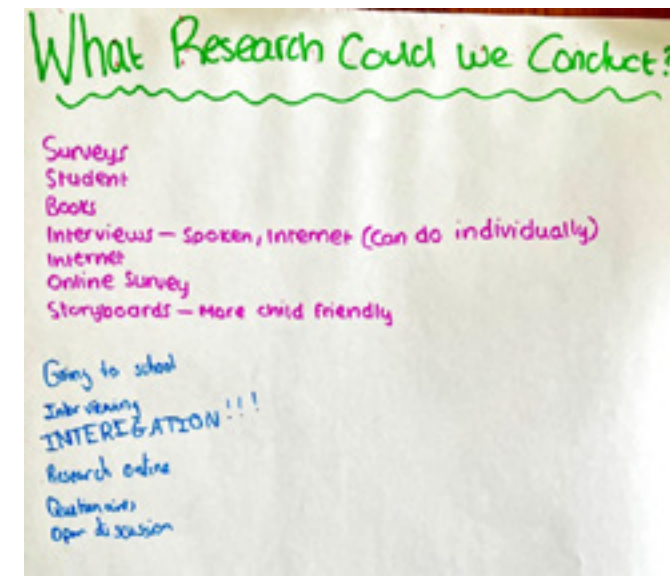 What Research Could we Conduct?
Surveys
Student
Books
Interviews – Spoken, Internet (Can do individually)
Internet
Online Survey
Storyboards – More child friendly
Going to school
Interviewing
INTERIGATION!!!
Research online
Questionaires
Open discussion